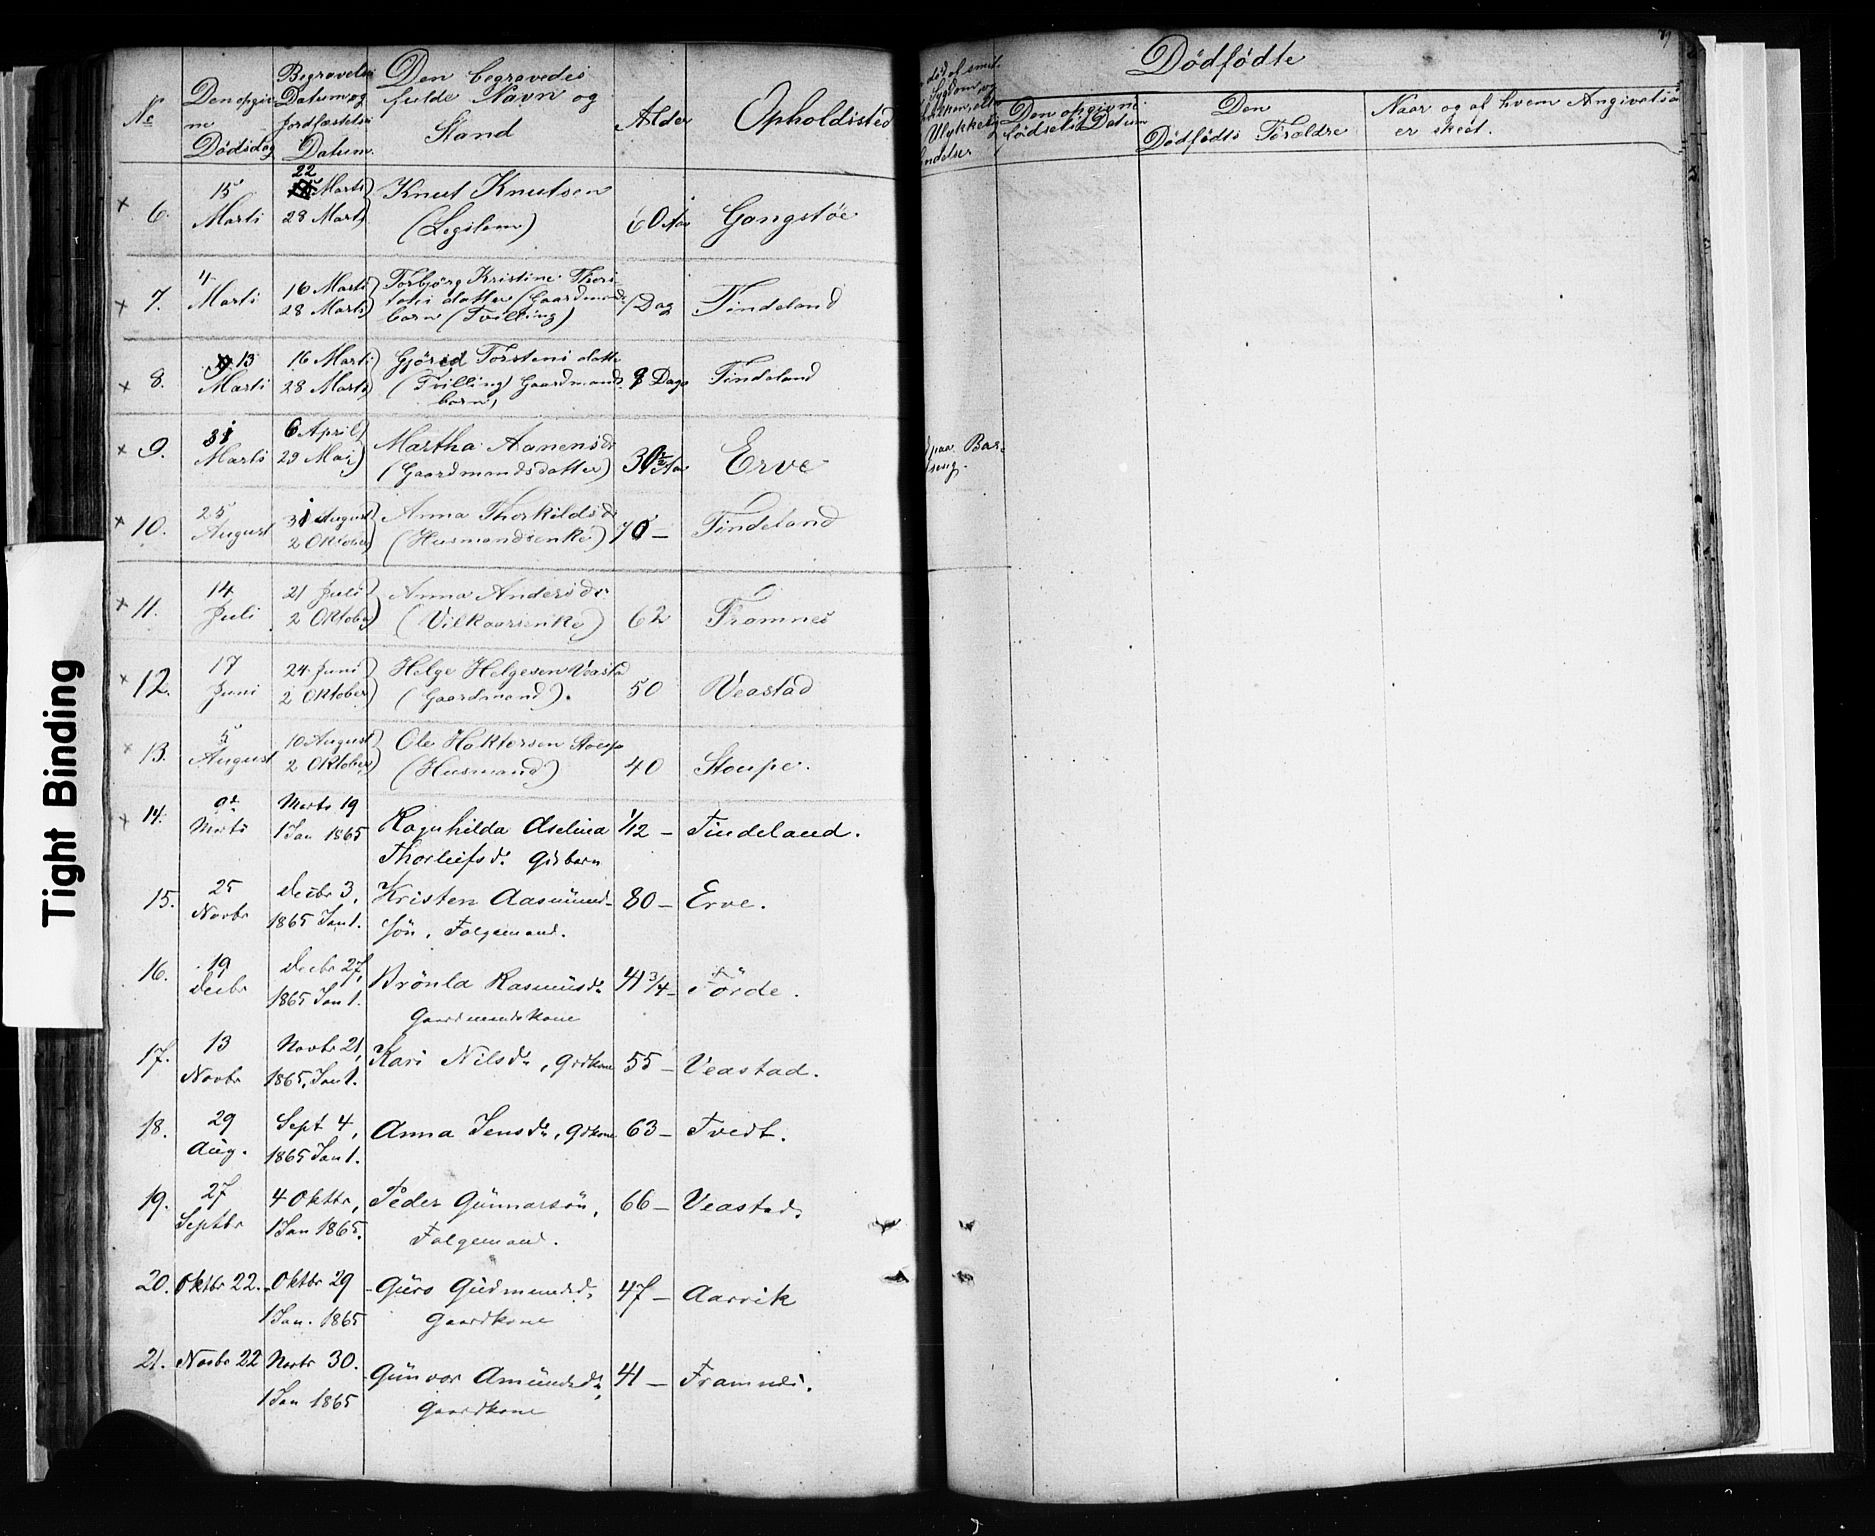 Tight Binding
No
Den opgivne Dødsdag
Begravelses Datum og Jordfæstelses Datum
Den begravedes fulde Navn og Stand
Alder
Opholdssted
6. 15 Marts 22 Marts 28 Marts Knut Knutsen (Legslem) 60 Aar Gangstøe
7. 4 Marts 16 Marts 28 Marts Torbjørg Kristine datter (Gaardmands barn (Tvilling) 1 Dag Tindeland
8. 13 Marts 16 Marts 28 Marts Gjørid Torstens datter (Tvilling) Gaardmands barn, 9 Dage Tindeland
9. 31 Marts 6 April 29 Mai Martha Aanensdr (Gaardmandsdatter) 30½ Aar Erve
10. 25 August 31 August 2 Oktober Anna Thorkildsdr (Husmandsenke) 70 — Tindeland
11. 14 Juli 21 Juli 2 Oktober Anna Andersdr (Vilkaarsenke) 62 Framnes
12. 17 Juni 24 Juni 2 Oktober Helge Helgesen Veastad (Gaardmand). 50 Veastad
13. 5 August 10 August 2 Oktober Ole Haktorsen Stoupe (Husmand) 40 Stoupe.
14. 9de Marts Marts 19 1 Jan 1865 Ragnhilda Aselina Thorleifsdr Gdbarn 1/12 — Tindeland.
15. 25 Novbr Decbr 3, 1865 Jan 1. Kristen Aasmundsøn, Folgemand. 80 — Erve.
16. 19 Decbr Decbr 27, 1865 Jan 1. Brönla Rasmusdr Gaardmandskone 41 3/4 — Førde.
17. 13 Novbr Novbr 21, 1865, Jan 1. Kari Nilsdr, Grdkone 55 — Veastad.
18. 29 Aug. Sept 4, 1865 Jan 1. Anna Jensdr, Gdkone 63 — Tvedt.
19. 27 Septbr 4 Oktbr, 1 Jan 1865. Peder Gunnarsøn, Folgemand. 66 — Veastad.
20. Oktbr 22. Oktbr 29 1 Jan. 1865 Guro Gudmundsd. Gaardkone 47 — Aarvik
21. Novbr 22 Novbr 30. 1 Jan 1865 Gunvor Amundsdr, Gaardkone 41 — Framnes.
død af smit
Sygdom og
Ulykkes
hændelser
d paa Bar-
selseng.
Dødfødte
Den opgivne Fødselsdatum
Den Dødfødtes Forældre
Naar og af hvem Angivelsen er skeet.